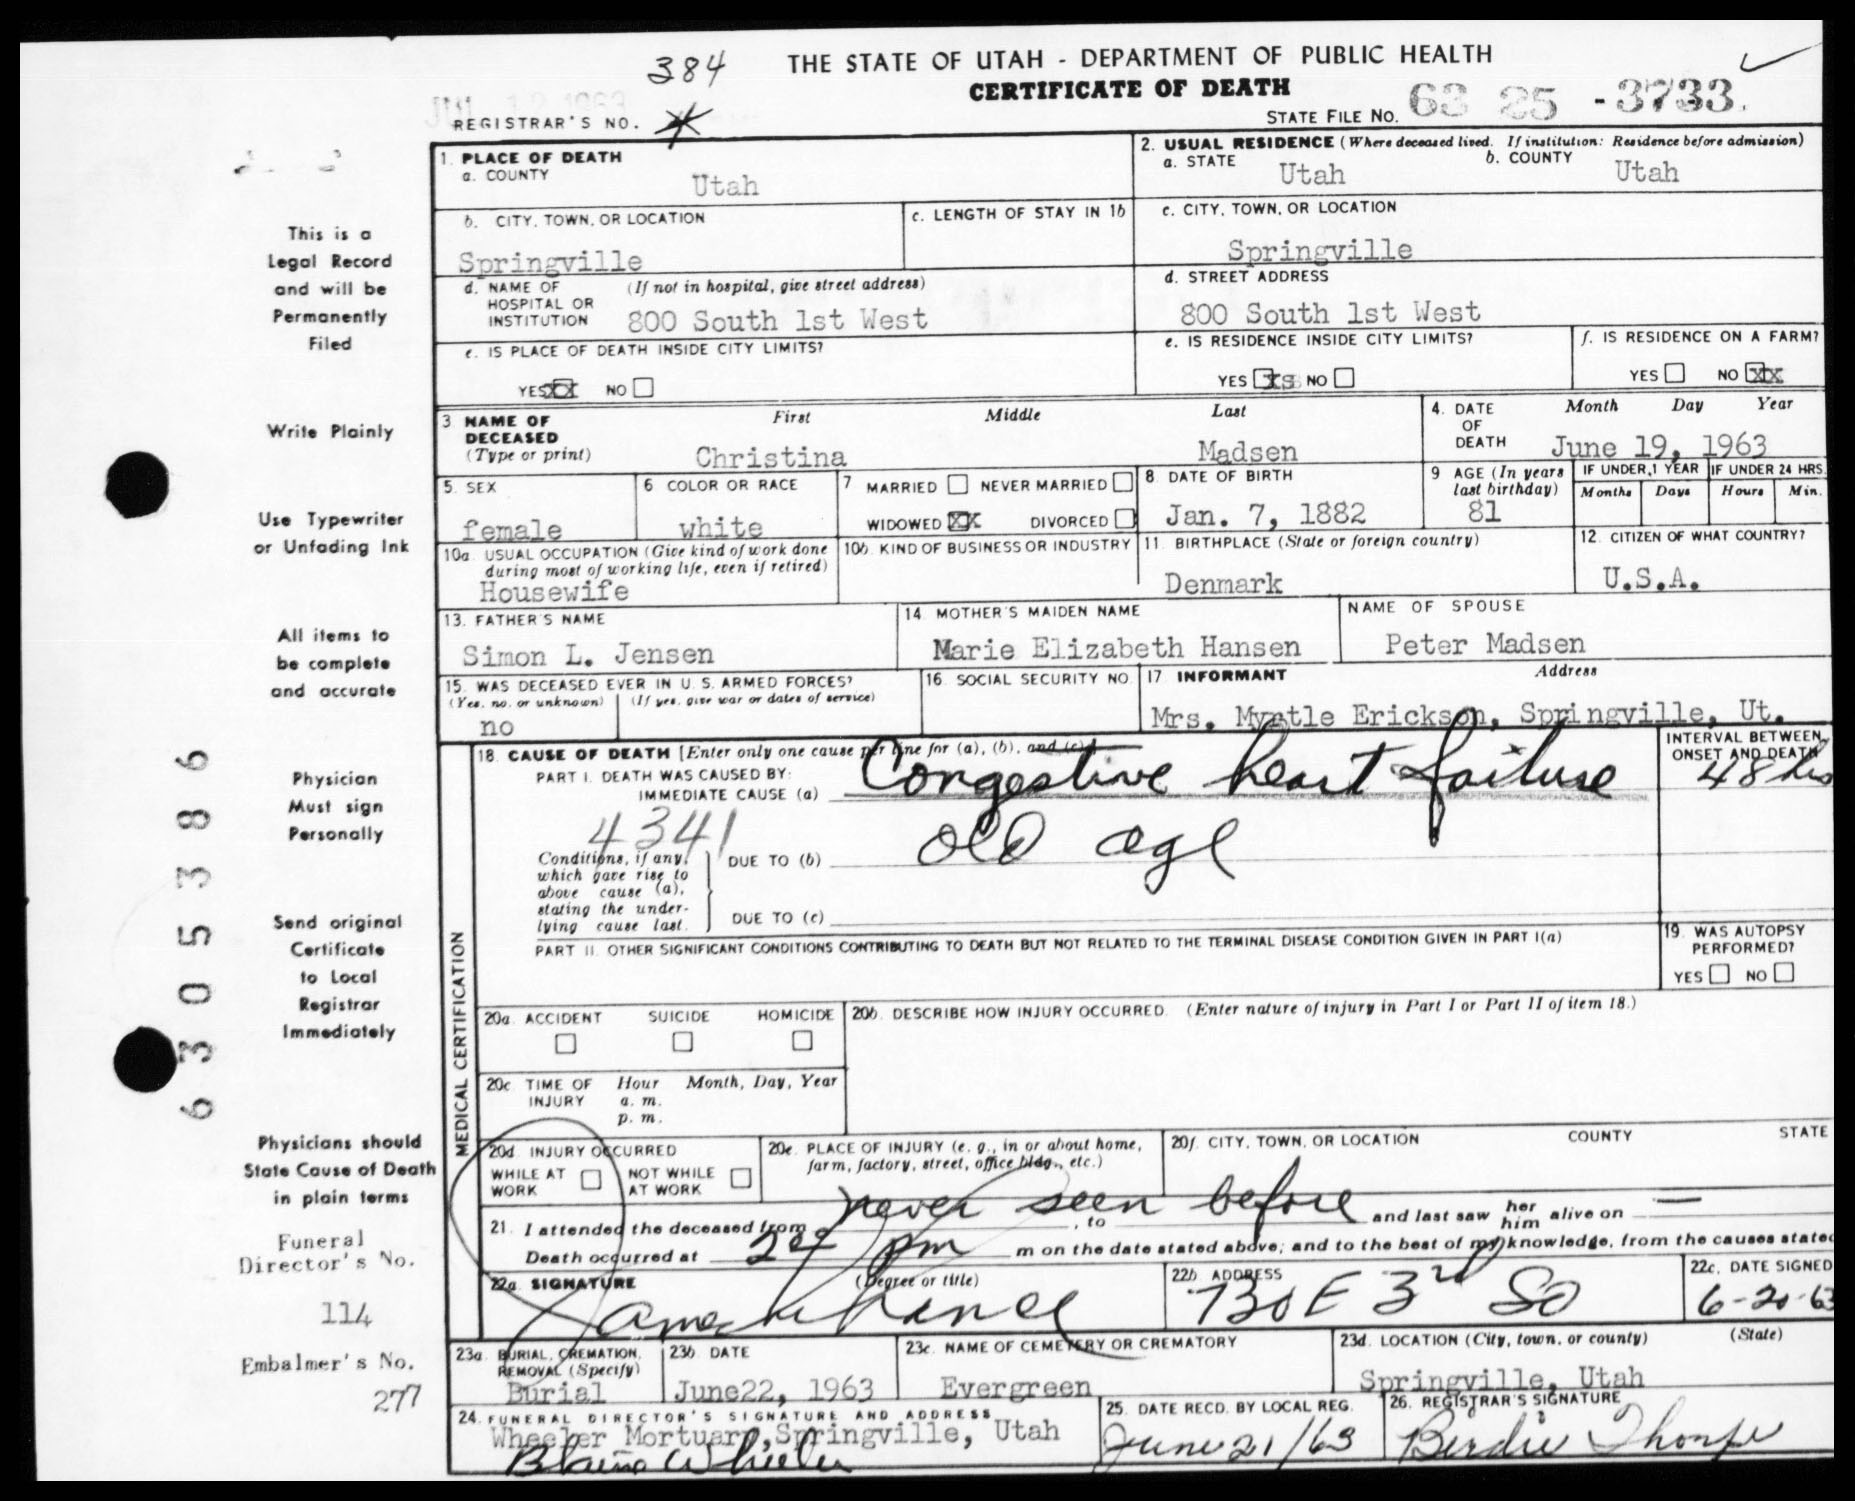 384
THE STATE OF UTAH - DEPARTMENT OF PUBLIC HEALTH
CERTIFICATE OF DEATH
REGISTRAR'S NO.
STATE FILE NO. 63 25 - 3733
1. PLACE OF DEATH
a. COUNTY
Utah
2. USUAL RESIDENCE (Where deceased lived. If institution: Residence before admission)
a. STATE Utah b. COUNTY Utah
b. CITY, TOWN, OR LOCATION
Springville
c. LENGTH OF STAY IN 1b
c. CITY, TOWN, OR LOCATION
Springville
d. NAME OF HOSPITAL OR INSTITUTION (If not in hospital, give street address)
800 South 1st West
d. STREET ADDRESS
800 South 1st West
e. IS PLACE OF DEATH INSIDE CITY LIMITS?
YES XX NO
e. IS RESIDENCE INSIDE CITY LIMITS?
YES xs NO
f. IS RESIDENCE ON A FARM?
YES NO XX
3 NAME OF DECEASED (Type or print)
First Middle Last
Christina Madsen
4. DATE OF DEATH
Month Day Year
June 19, 1963
5. SEX
female
6 COLOR OR RACE
white
7 MARRIED NEVER MARRIED
WIDOWED XX DIVORCED
8. DATE OF BIRTH
Jan. 7, 1882
9 AGE (In years last birthday)
81
IF UNDER 1 YEAR
Months Days
IF UNDER 24 HRS.
Hours Min.
10a. USUAL OCCUPATION (Give kind of work done during most of working life, even if retired)
Housewife
10b. KIND OF BUSINESS OR INDUSTRY
11. BIRTHPLACE (State or foreign country)
Denmark
12. CITIZEN OF WHAT COUNTRY?
U.S.A.
13. FATHER'S NAME
Simon L. Jensen
14. MOTHER'S MAIDEN NAME
Marie Elizabeth Hansen
NAME OF SPOUSE
Peter Madsen
15. WAS DECEASED EVER IN U.S. ARMED FORCES?
(Yes, no, or unknown) (If yes, give war or dates of service)
no
16. SOCIAL SECURITY NO.
17 INFORMANT Address
Mrs. Myrtle Erickson, Springville, Ut.
MEDICAL CERTIFICATION
18. CAUSE OF DEATH [Enter only one cause per line for (a), (b), and (c).]
PART I. DEATH WAS CAUSED BY:
IMMEDIATE CAUSE (a) Congestive heart failure
INTERVAL BETWEEN ONSET AND DEATH
48 hrs
4341
Conditions, if any, which gave rise to above cause (a), stating the underlying cause last.
DUE TO (b) old age
DUE TO (c)
PART II. OTHER SIGNIFICANT CONDITIONS CONTRIBUTING TO DEATH BUT NOT RELATED TO THE TERMINAL DISEASE CONDITION GIVEN IN PART I(a)
19. WAS AUTOPSY PERFORMED?
YES NO
20a. ACCIDENT SUICIDE HOMICIDE
20b. DESCRIBE HOW INJURY OCCURRED. (Enter nature of injury in Part I or Part II of item 18.)
20c. TIME OF INJURY Hour Month, Day, Year
a. m.
p. m.
20d. INJURY OCCURRED
WHILE AT WORK NOT WHILE AT WORK
20e. PLACE OF INJURY (e. g., in or about home, farm, factory, street, office bldg., etc.)
20f. CITY, TOWN, OR LOCATION COUNTY STATE
never seen before
21. I attended the deceased from , to and last saw her him alive on —
Death occurred at pm m on the date stated above; and to the best of my knowledge, from the causes stated
22a. SIGNATURE (Degree or title)
22b. ADDRESS
730 E 3rd So
22c. DATE SIGNED
6-20-63
23a. BURIAL, CREMATION, REMOVAL (Specify)
Burial
23b DATE
June22, 1963
23c. NAME OF CEMETERY OR CREMATORY
Evergreen
23d. LOCATION (City, town, or county) (State)
Springville, Utah
24. FUNERAL DIRECTOR'S SIGNATURE AND ADDRESS
Wheeler Mortuary,Springville, Utah
Blaine Wheeler
25. DATE RECD. BY LOCAL REG.
June 21/63
26. REGISTRAR'S SIGNATURE
Birdie Thorpe
This is a
Legal Record
and will be
Permanently
Filed
Write Plainly
Use Typewriter
or Unfading Ink
All items to
be complete
and accurate
Physician
Must sign
Personally
Send original
Certificate
to Local
Registrar
Immediately
Physicians should
State Cause of Death
in plain terms
Funeral
Director's No.
114
Embalmer's No.
277
6305386